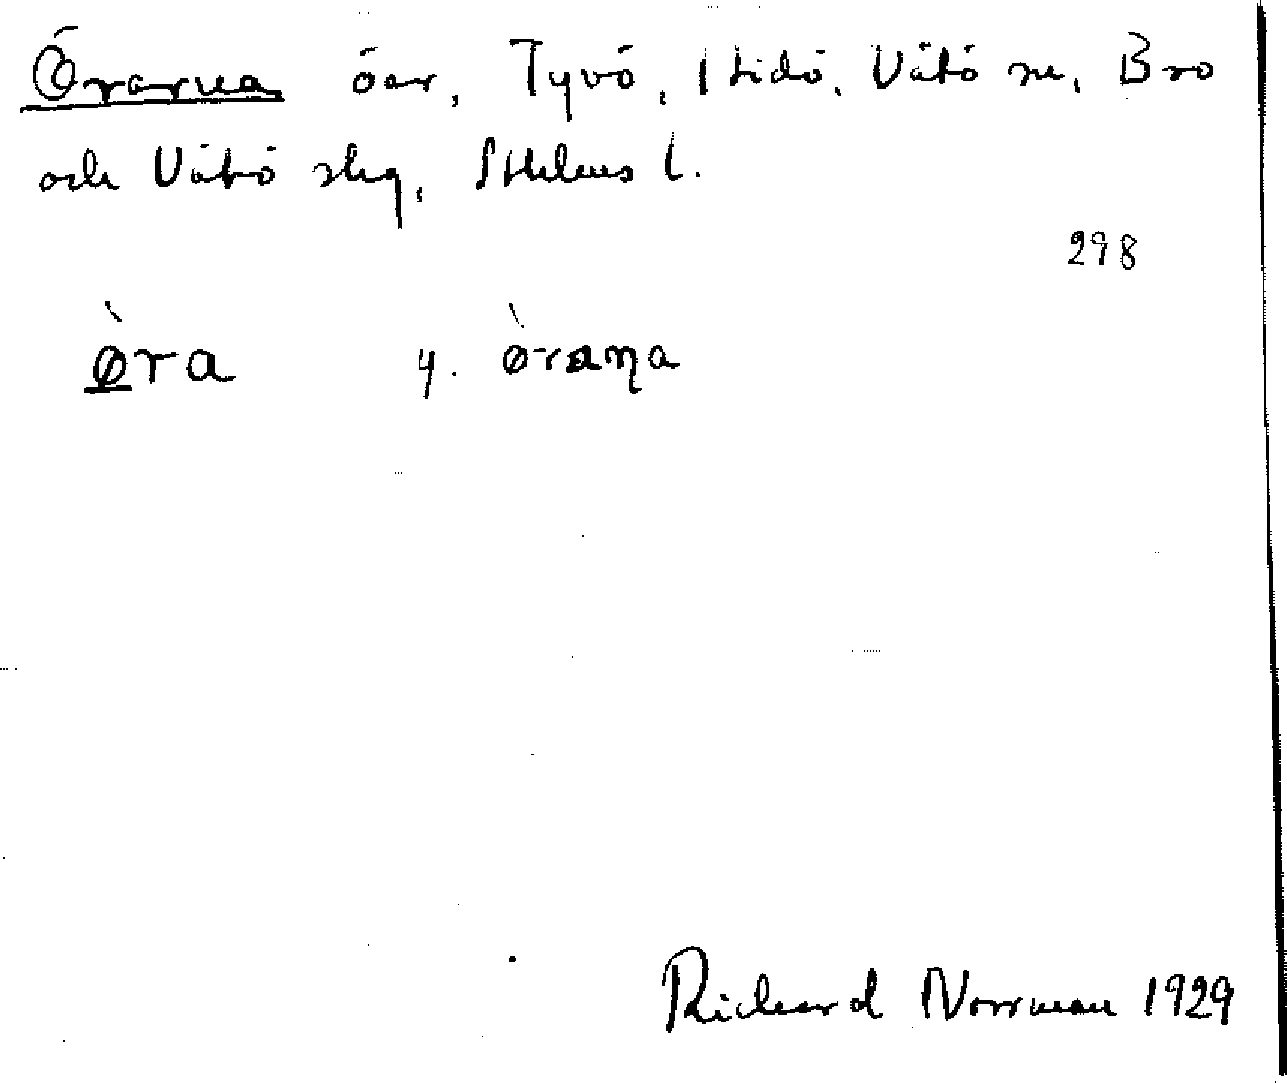 Örarna öar, Tyvö, Htidö, Vätö sn, Bro
och Vätö skg, Sthlms l.
298
ø̀ra y. ø̀raṇa
Richard Norrman 1929